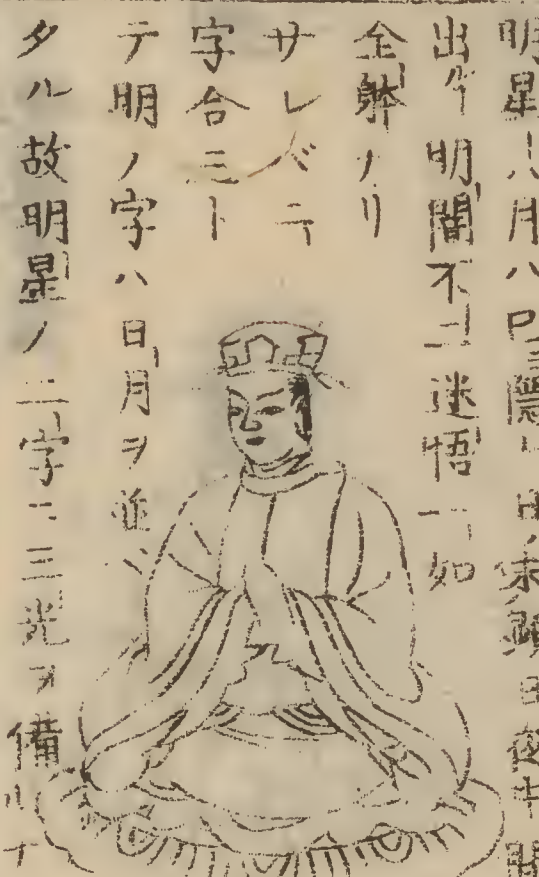 明星ハ月ハ已隱レ日ノ未顕日夜中間
出ルヤ明闇不二迷悟一如
全躰ナリ
サレバニ
字合ニト
テ明ノ字ハ日月ヲ並ベ
タル故明星ノ二字ニ三光ヲ備